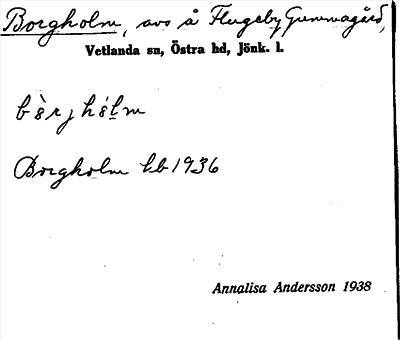 Borgholm, avs å Flugeby Gummagård,
Vetlanda sn, Östra hd, Jönk. l.
bòrjhólm
Borgholm kb 1936
Annalisa Andersson 1938